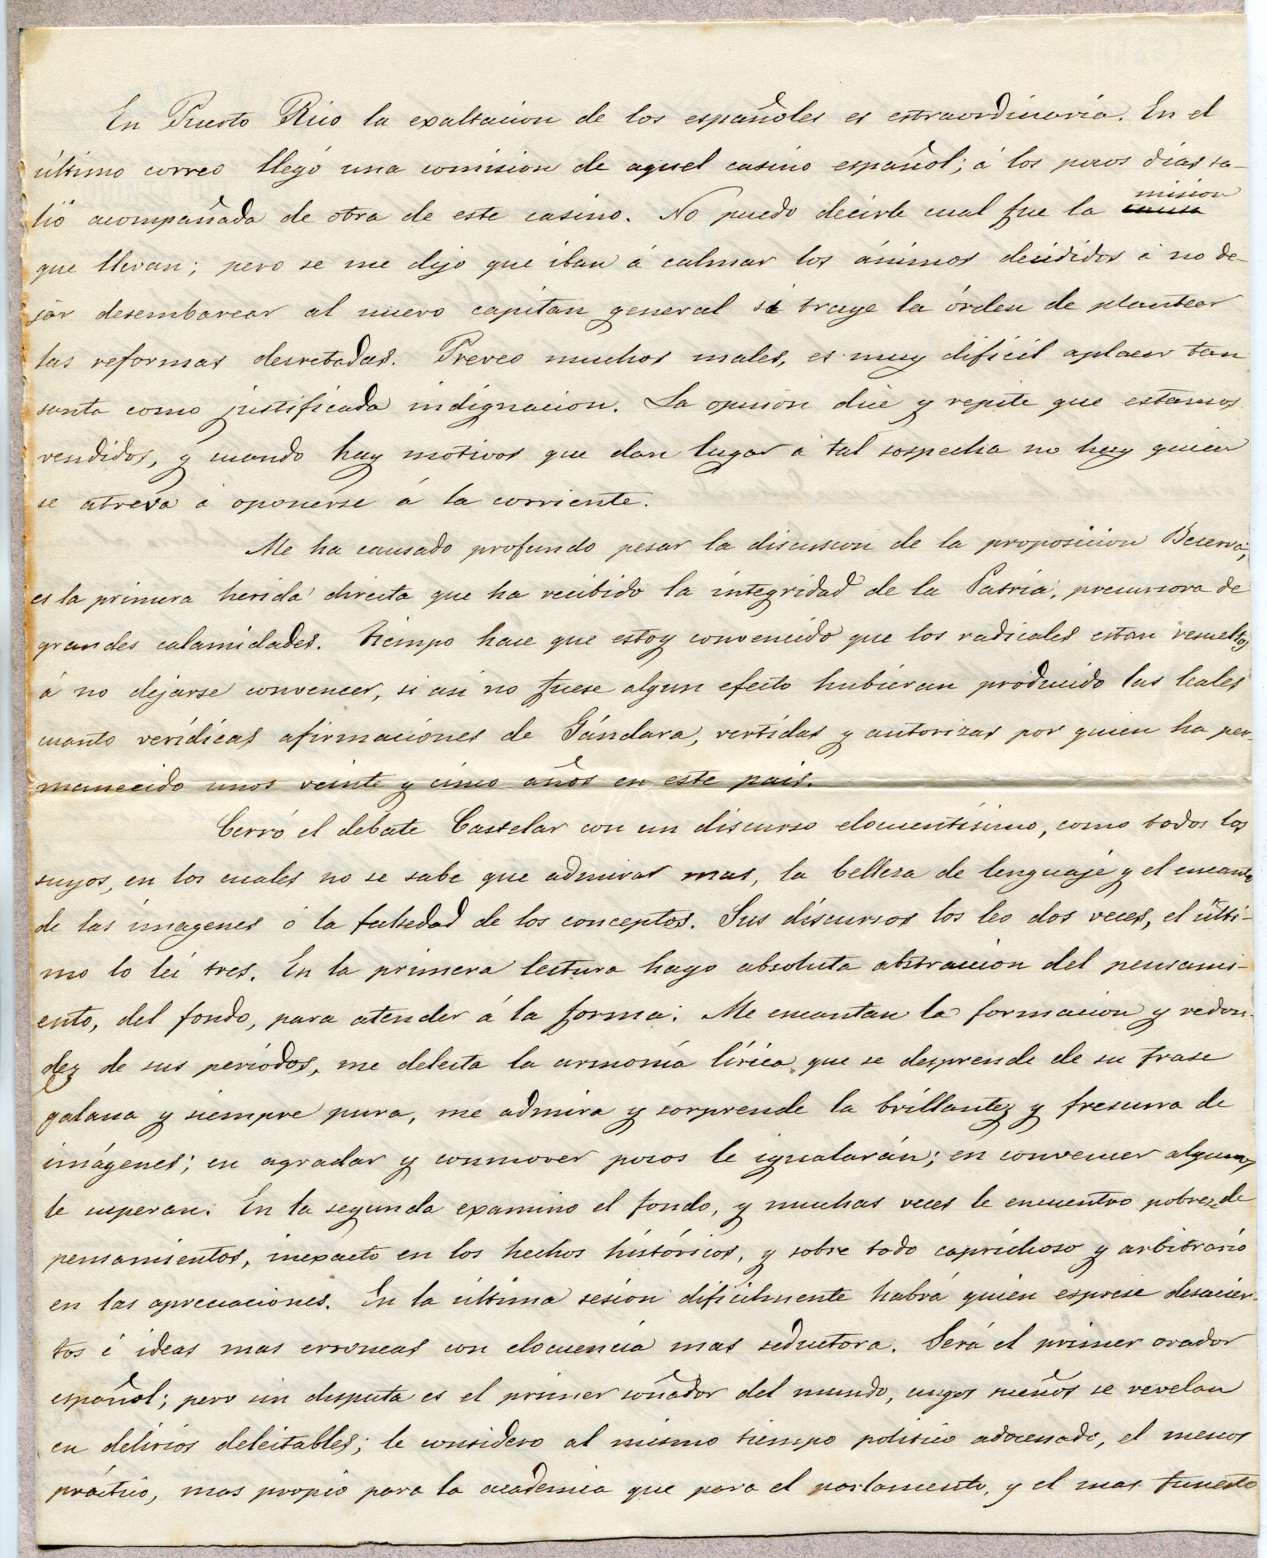 En Puerto Rico la exaltacion de los españoles es estraordinaria. En el
último correo llegó una comision de aquel casino español; á los pocos dias sa-
lió acompañada de otra de este casino. No puedo decirle cual fue la mision
que llevan; pero se me dijo que iban á calmar los ánimos decididos á no de-
jar desembarcar al nuevo capitan general si traye la órden de plantear
las reformas decretadas. Preveo muchos males, es muy dificil aplacar tan
santa como justificada indignacion. La opinion dice y repite que estamos
vendidos, y cuando hay motivos que dan lugar á tal sospecha no hay quien
se atreva á oponerse á la corriente.
Me ha causado profundo pesar la discusion de la proposicion Becerra,
es la primera herida directa que ha recibido la integridad de la Patria, precursora de
grandes calamidades. Tiempo hace que estoy convencido que los radicales estan resueltos
á no dejarse convencer, si asi no fuese algun efecto hubieran producido las leales
cuanto verídicas afirmaciones de Gándara, vertidas y autorizas por quien ha per-
manecido unos veinte y cinco años en este pais.
Cerró el debate Castelar con un discurso elocuentísimo, como todos los
suyos, en los cuales no se sabe que admirar mas, la belleza de lenguaje y el encanto
de las imagenes ó la falsedad de los conceptos. Sus discursos los leo dos veces, el últi-
mo lo leí tres. En la primera lectura hago absoluta abstraccion del pensami-
ento, del fondo, para atender á la forma. Me encantan la formacion y redon-
dez de sus períodos, me deleita la armonía lírica que se desprende de su frase
galana y siempre pura, me admira y sorprende la brillantez y frescura de
imágenes; en agradar y conmover pocos le igualarán; en convencer algunos
le superan. En la segunda examino el fondo, y muchas veces le encuentro pobreza de
pensamientos, inexacto en los hechos históricos, y sobre todo caprichoso y arbitrario
en las apreciaciones. En la última sesion dificilmente habrá quien esprese desacier-
tos é ideas mas erroneas con elocuencia mas seductora. Será el primer orador
español; pero sin disputa es el primer soñador del mundo, cuyos sueños se revelan
en delirios deleitables; le considero al mismo tiempo politico adocenado, el menos
práctico, mas propio para la academia que para el parlamento, y el mas funesto